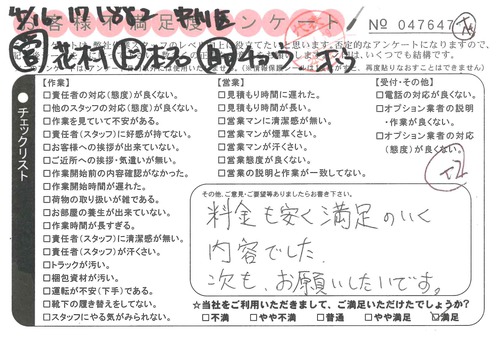 お客様満足度アンケート
№ 047647
【作業】
□責任者の対応(態度)が良くない。
□他のスタッフの対応(態度)が良くない。
□作業を見ていて不安がある。
□責任者(スタッフ)に好感が持てない。
□お客様への挨拶が出来ていない。
□ご近所への挨拶・気遣いが無い。
□作業開始前の内容確認がなかった。
□作業開始時間が遅れた。
□荷物の取り扱いが雑である。
□お部屋の養生が出来ていない。
□作業時間が長すぎる。
□責任者(スタッフ)に清潔感が無い。
□責任者(スタッフ)が汗くさい。
□トラックが汚い。
□梱包資材が汚い。
□運転が不安(下手)である。
□靴下の履き替えをしてない。
□スタッフにやる気がみられない。
【営業】
□見積もり時間に遅れた。
□見積もり時間が長い。
□営業マンに清潔感が無い。
□営業マンが煙草くさい。
□営業マンが汗くさい。
□営業態度が良くない。
□営業の説明と作業が一致してない。
【受付・その他】
□電話の対応が良くない。
□オプション業者の説明
・作業が良くない。
□オプション業者の対応
(態度)が良くない。
チェックリスト
その他、ご意見・ご要望等ありましたらお書き下さい。
料金も安く満足のいく
内容でした。
次も、お願いしたいです。
☆当社をご利用いただきまして、ご満足いただけたでしょうか?
□不満 □やや不満 □普通 □やや満足 ☑満足